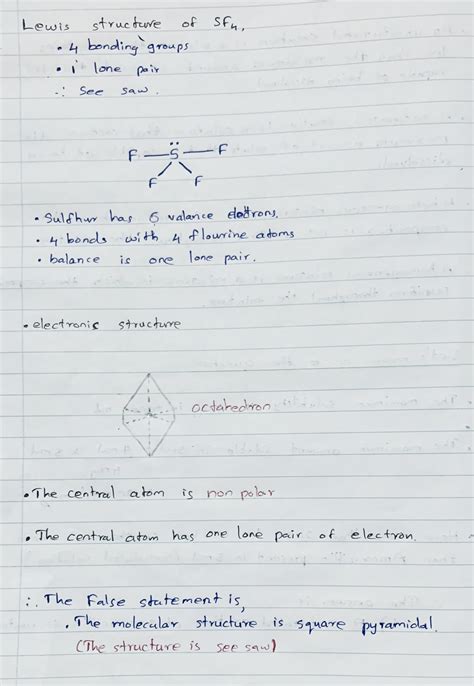 Lewis structure of SF4,
• 4 bonding groups
• 1 lone pair
∴ See saw.
F — S — F
F F
• Sulfhur has 6 valance elettrons.
• 4 bonds with 4 flourine atoms
• balance is one lone pair.
• electronic structure
octahedron
• The central atom is non polar
• The central atom has one lone pair of electron.
∴ The False statement is,
• The molecular structure is square pyramidal.
(The structure is see saw)